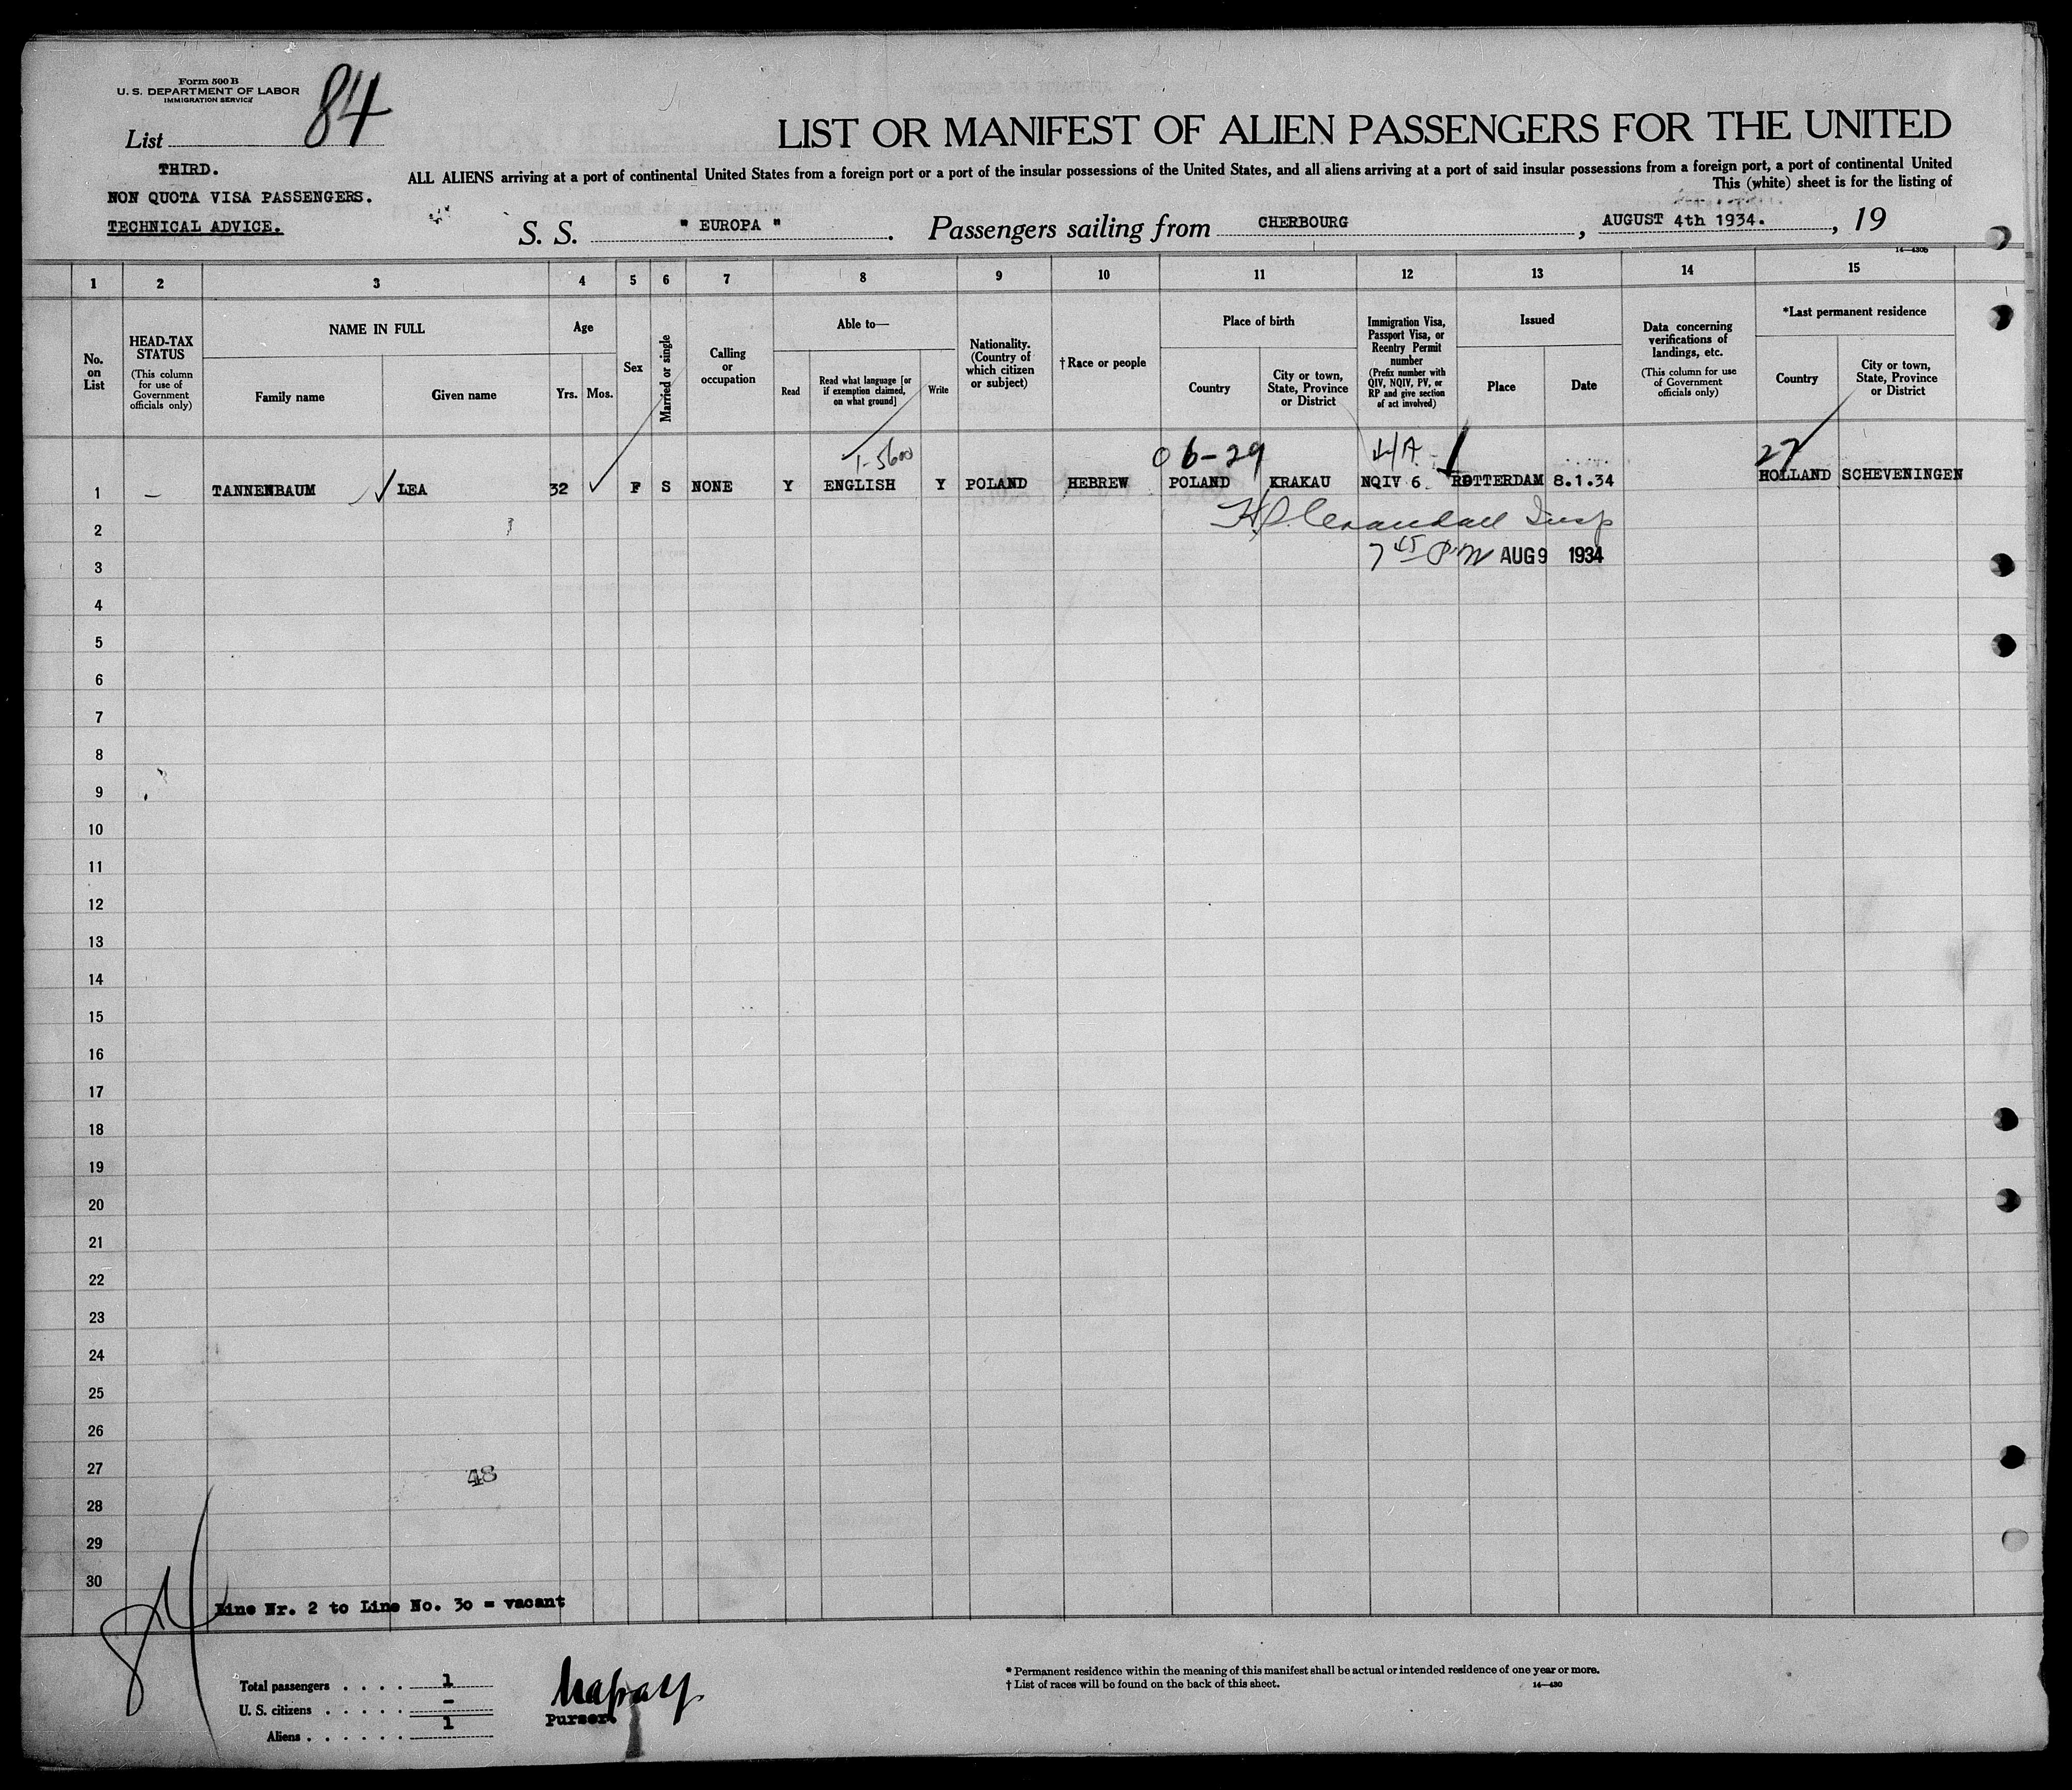 Form 500 B
U. S. DEPARTMENT OF LABOR
IMMIGRATION SERVICE
List 84
THIRD.
NON QUOTA VISA PASSENGERS.
TECHNICAL ADVICE.
LIST OR MANIFEST OF ALIEN PASSENGERS FOR THE UNITED
ALL ALIENS arriving at a port of continental United States from a foreign port or a port of the insular possessions of the United States, and all aliens arriving at a port of said insular possessions from a foreign port, a port of continental United
This (white) sheet is for the listing of
S. S. " EUROPA ". Passengers sailing from CHERBOURG, AUGUST 4th 1934., 19
14—430b
1 2 3 4 5 6 7 8 9 10 11 12 13 14 15
No. on List
HEAD-TAX STATUS
(This column for use of Government officials only)
NAME IN FULL
Family name
Given name
Age
Yrs. Mos.
Sex
Married or single
Calling or occupation
Able to—
Read
Read what language [or if exemption claimed, on what ground]
Write
Nationality. (Country of which citizen or subject)
† Race or people
Place of birth
Country
City or town, State, Province or District
Immigration Visa, Passport Visa, or Reentry Permit number
(Prefix number with QIV, NQIV, PV, or RP and give section of act involved)
Issued
Place
Date
Data concerning verifications of landings, etc.
(This column for use of Government officials only)
*Last permanent residence
Country
City or town, State, Province or District
1-5600 06-29 27
1 — TANNENBAUM LEA 32 F S NONE Y ENGLISH Y POLAND HEBREW POLAND KRAKAU NQIV 6 ROTTERDAM 8.1.34 HOLLAND SCHEVENINGEN
2 Insp
3 7 45 PM AUG 9 1934
4
5
6
7
8
9
10
11
12
13
14
15
16
17
18
19
20
21
22
23
24
25
26
27 48
28
29
30
84 Line Nr. 2 to Line No. 30 = vacant
Total passengers . . . . 1
U. S. citizens . . . . . —
Aliens . . . . . . 1
Purser.
* Permanent residence within the meaning of this manifest shall be actual or intended residence of one year or more.
† List of races will be found on the back of this sheet.
14—430